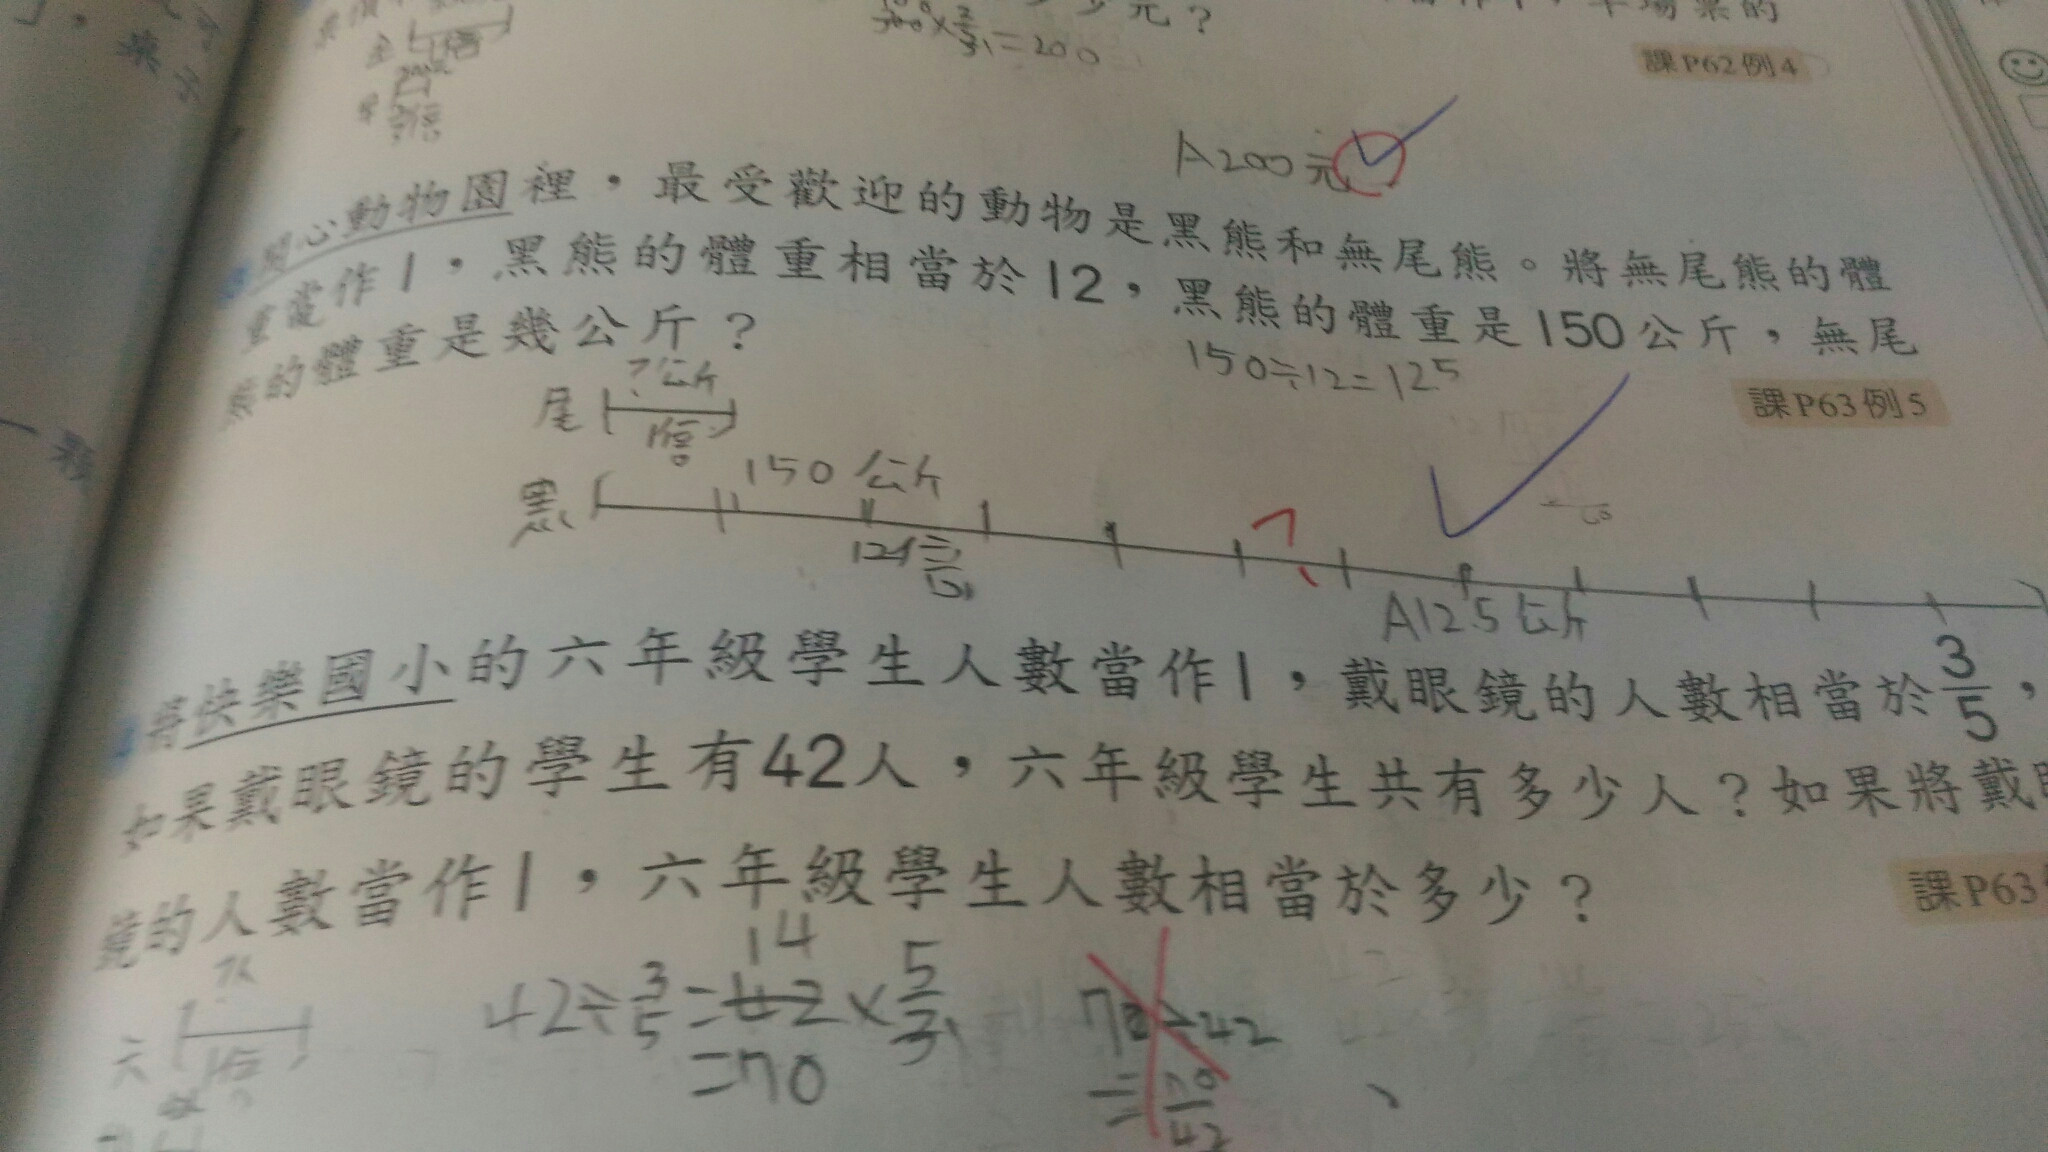 元？
×2/3=200
課P62例4
A200元
開心動物園裡，最受歡迎的動物是黑熊和無尾熊。將無尾熊的體
重當作1，黑熊的體重相當於12，黑熊的體重是150公斤，無尾
熊的體重是幾公斤？
150÷12=12.5
課P63例5
尾
?公斤
1倍
黑
150公斤
12倍
A12.5公斤
將快樂國小的六年級學生人數當作1，戴眼鏡的人數相當於3/5，
如果戴眼鏡的學生有42人，六年級學生共有多少人？如果將戴眼
鏡的人數當作1，六年級學生人數相當於多少？
課P63
42÷3/5=42×5/3
14
1
=70
70÷42
=70/42
六
?人
1倍